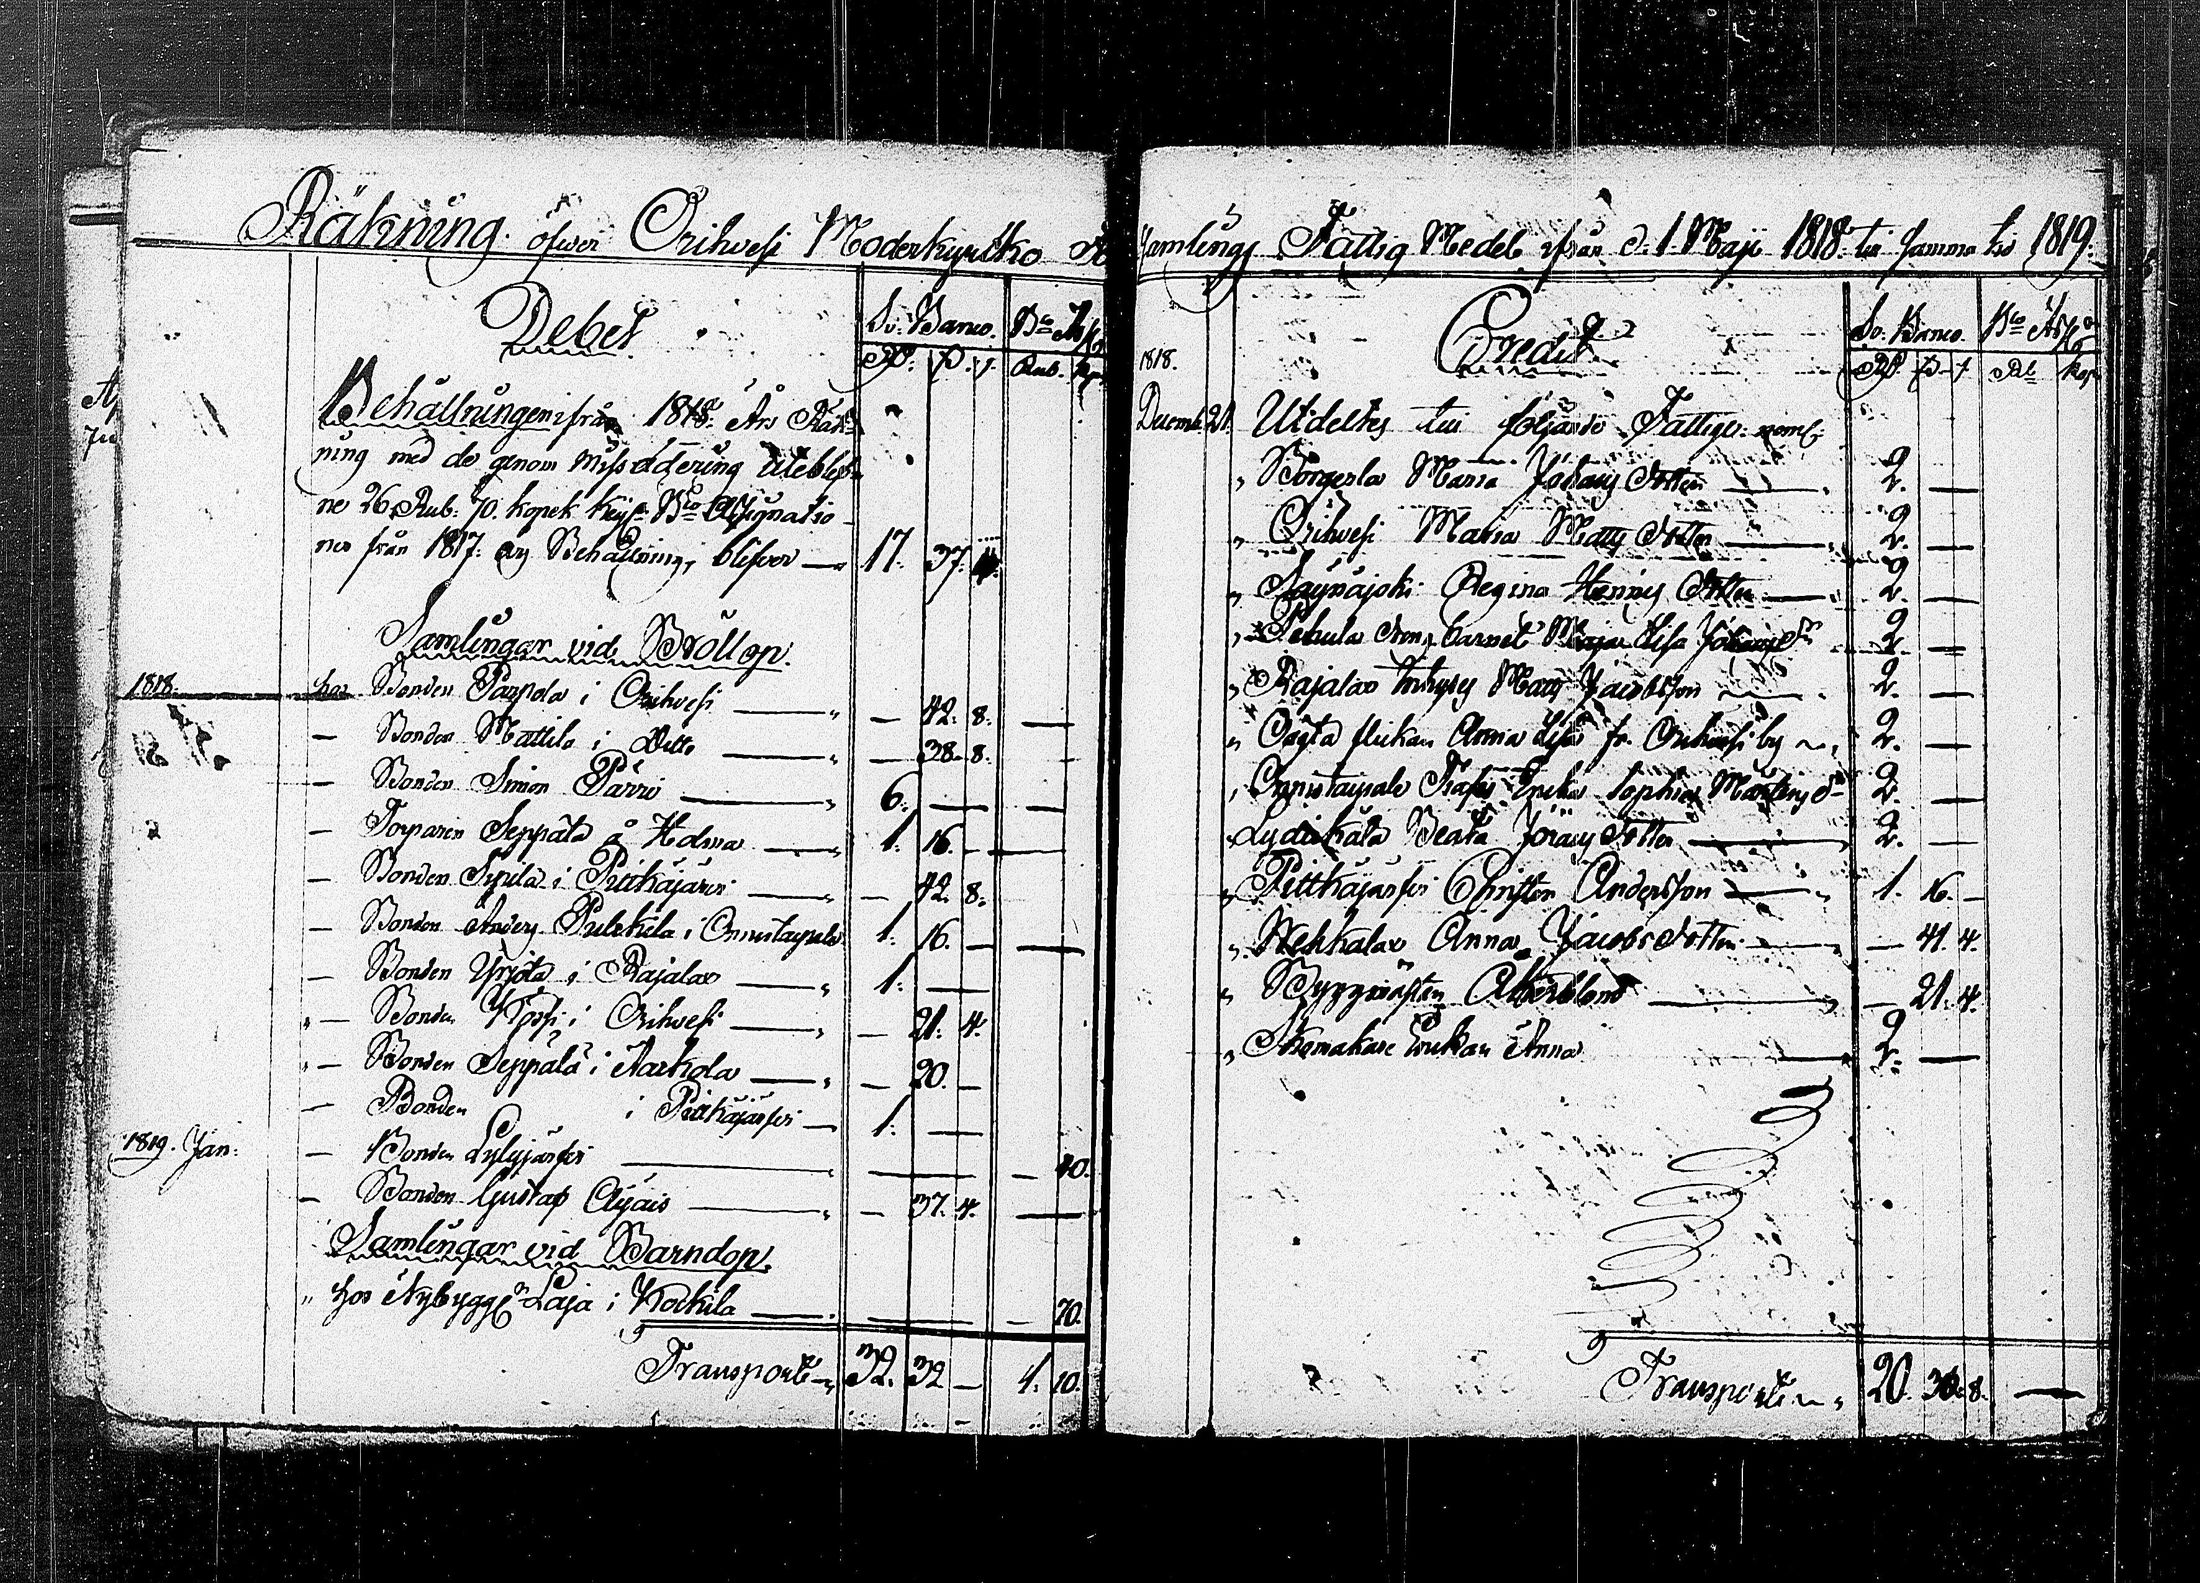 Räkning öfwer Orihvesi Moderkyrcko
Samlings Fattig Medel ifrån d: 1 Maji 1818 till samma tid 1819.
Debet
Sv: Banco. Bco
Rd. ß. r. Rub. Kop
Behållningen ifrån 1818 Års Räk-
ning med de genom Missräkning uteblef-
ne 26 Rub: 70. kopek Keys: Bco Assignatio-
ner från 1817: Behållning, blifver — 17. 37. 4.
Samlingar vid Bröllop.
1818. hos Bonden Parpola i Orihvesi — — 42. 8. —
— Bonden Mattila i Ditto — — 38. 8. —
— Bonden Simon Pärri — 6. — —
— Torparen Seppälä å Holma — 1. 16. — —
— Bonden Sipilä i Pitkäjärvi — — 42. 8.
— Bonden Anders Pulckila i Onnistaipale 1. 16. — —
— Bonden Yrjölä i Rajalax — 1. —
— Bonden i Orihvesi — — 21. 4.
— Bonden Seppälä i Aarkola — — 20. —
— Bonden i Pittkäjärfvi — 1. —
1819. Jan: — Bonden Lylyjärfvi — — — 40.
— Bonden Gustaf — — 37. 4. —
Samlingar vid Barndop.
" hos Nybygg Laja i Kockila — — — 70.
Transport — 32. 32 — 1. 10.
Credit
Sv: Banco. Bco
1818. Rd. ß. r. Rbl Kop
Decemb: 21. Utdeltes till följande Fattige neml:
" Maria Johans Dotter — 2. —
" Orihvesi Maria Matts Dotter — 2. —
" Säynäjoki Regina Henrics Dotter — 2. —
" barnet Maja Lisa Johans Dr 2. —
" Rajalax Matts Jacobsson — 2. —
" flickan Anna Lisa fr. Orihvesi by 2. —
" Onnistaipale Erika Sophia Mårtens Dr 2. —
Beata Jöran Dotter — 2. —
" Pittkäjärfvi Christer Andersson — 1. 16. —
" Anna Jacobs Dotter — — 41. 4.
" Byggmästen — — 21. 4.
" Skomakare Enkan Anna — 2. —
Transport — 20. 30. 8. —